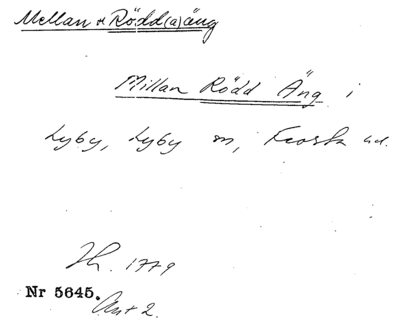 Mellan Rödd(a)äng
Millan Rödd Äng i
Lyby, Lyby sn, Frosta hd.
1779
Nr 5645.
Akt 2.